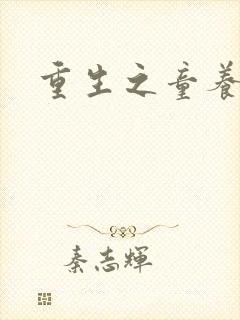 重生之童養
秦志輝